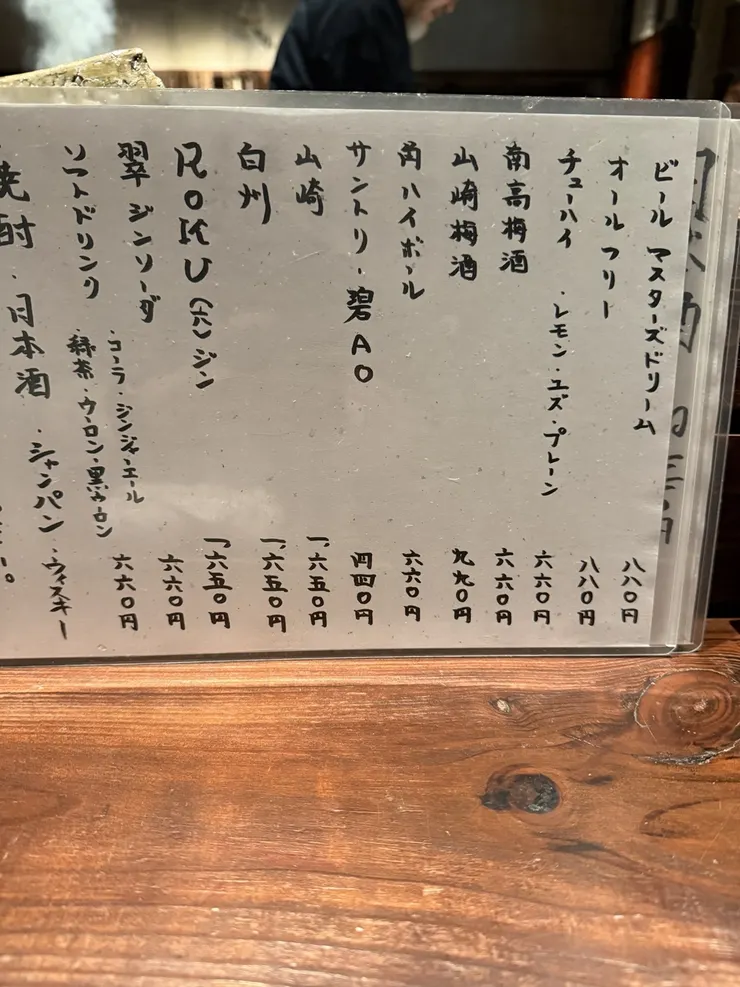 ビール マスターズドリーム 八八〇円
オールフリー 八八〇円
チューハイ ・レモン・ユズ・プレーン 六六〇円
南高梅酒 六六〇円
山崎梅酒 九九〇円
角ハイボール 六六〇円
サントリー碧AO 四四〇円
山崎 一、六五〇円
白州 一、六五〇円
ROKU(六)ジン 一、六五〇円
翠ジンソーダ 六六〇円
ソフトドリンク ・コーラ・ジンジャーエール 六六〇円
・緑茶・ウーロン・黒ウーロン
焼酎・日本酒・シャンパン・ウィスキー